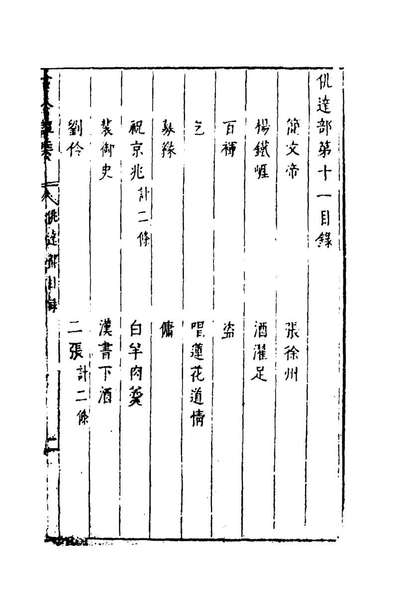 佻達部第十一目錄
簡文帝　張徐州
楊鐵崕　酒濯足
百補　盜
乞　唱蓮花道情
募緣　傭
祝京兆計二條　白羊肉羹
裴御史　漢書下酒
劉伶　二張計二條
佻達部目錄